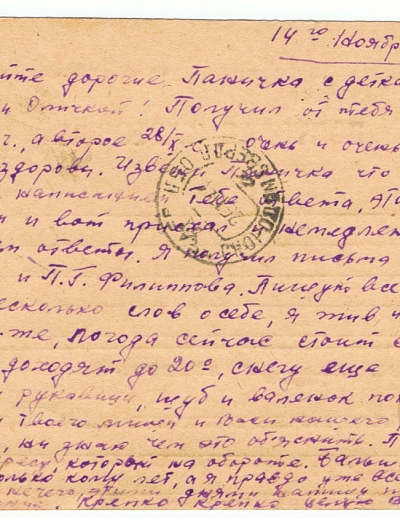 14го Ноябр
йте дорогие Паничка с детка
и Оличкой! Получил от тебя
г., а второе 28/X очень и очень
здоровы. Извести Паничка что
написание тебе ответа,
и вот приехал немедлен
ем ответы. Я получил письма
и П.Г. Филиппова. Пишут все
несколько слов о себе, я жив и
же, погода сейчас стоит
доходят до 20°, снегу еще
и рукавицы, шуб и валенок по
твоего и Васи нашего
, ни знаю чем это объяснить. П
ресу, который на обороте.
только кому лет, а я правдо уже все
нечего, днями напишу п
Крепко Крепко целую В